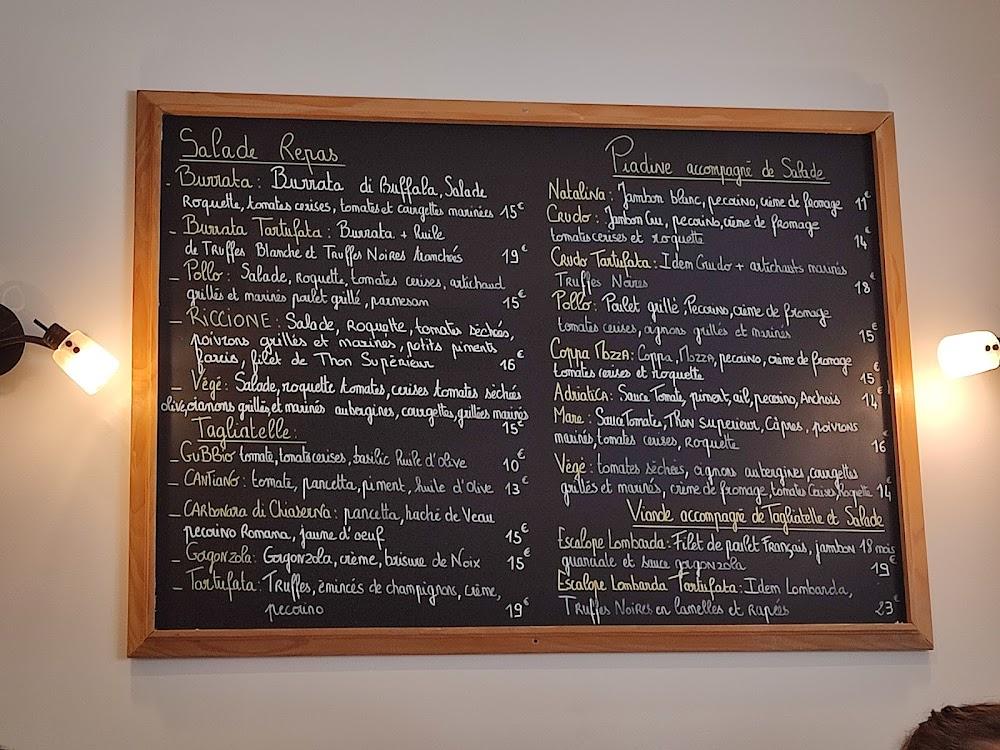 Salade Repas
- Burrata : Burrata di Buffala, Salade
Roquette, tomates cerises, tomates et courgettes marinées 15€
- Burrata Tartufata : Burrata + Huile
de Truffes Blanche et Truffes Noires tranchés 19€
- Pollo : Salade, roquette, tomates cerises, artichaud
grillés et marinés poulet grillé, parmesan 15€
- RICCIONE : Salade, Roquette, tomates séchées,
poivrons grillés et marinés, petits piments
farcis, filet de Thon Supérieur 16€
- Végé : Salade, roquette tomates, cerises tomates séchés
olive, oignons grillés et marinés aubergines, courgettes, grillées marinés 15€
Tagliatelle :
- GUBBIO tomate, tomates cerises, basilic huile d'olive 10€
- CANTIANO : tomate, pancetta, piment, huile d'olive 13€
- CARBONARA di Chiaserna : pancetta, haché de Veau
pecorino Romana, jaune d'oeuf 15€
- Gorgonzola : Gorgonzola, crème, brisure de Noix 15€
- Tartufata : Truffes, émincés de champignons, crème,
pecorino 19€
Piadine accompagné de Salade
Natalina : Jambon blanc, pecorino, crème de fromage 11€
Crudo : Jambon Cru, pecorino, crème de fromage
tomates cerises et roquette 14€
Crudo Tartufata : Idem Crudo + artichauts marinés
Truffes Noires 18€
Pollo : Poulet grillé, Pecorino, crème de fromage
tomates cerises, oignons grillés et marinés 15€
Coppa Mozza : Coppa, Mozza, pecorino, crème de fromage
tomates cerises et roquette 15€
Adriatica : Sauce Tomate, piment, ail, pecorino, Anchois 14€
Mare : Sauce Tomate, Thon superieur, Câpres, poivrons
marinés, tomates cerises, roquette 16€
Végé : tomates séchées, oignons aubergines, courgettes
grillés et marinés, crème de fromage, tomates Cerises, Roquette 14€
Viande accompagné de Tagliatelle et Salade
Escalope Lombarda : Filet de poulet Français, jambon 18 mois
guanciale et sauce gorgonzola 19€
Escalope Lombarda Tartufata : Idem Lombarda,
Truffes Noires en lamelles et rapées 23€